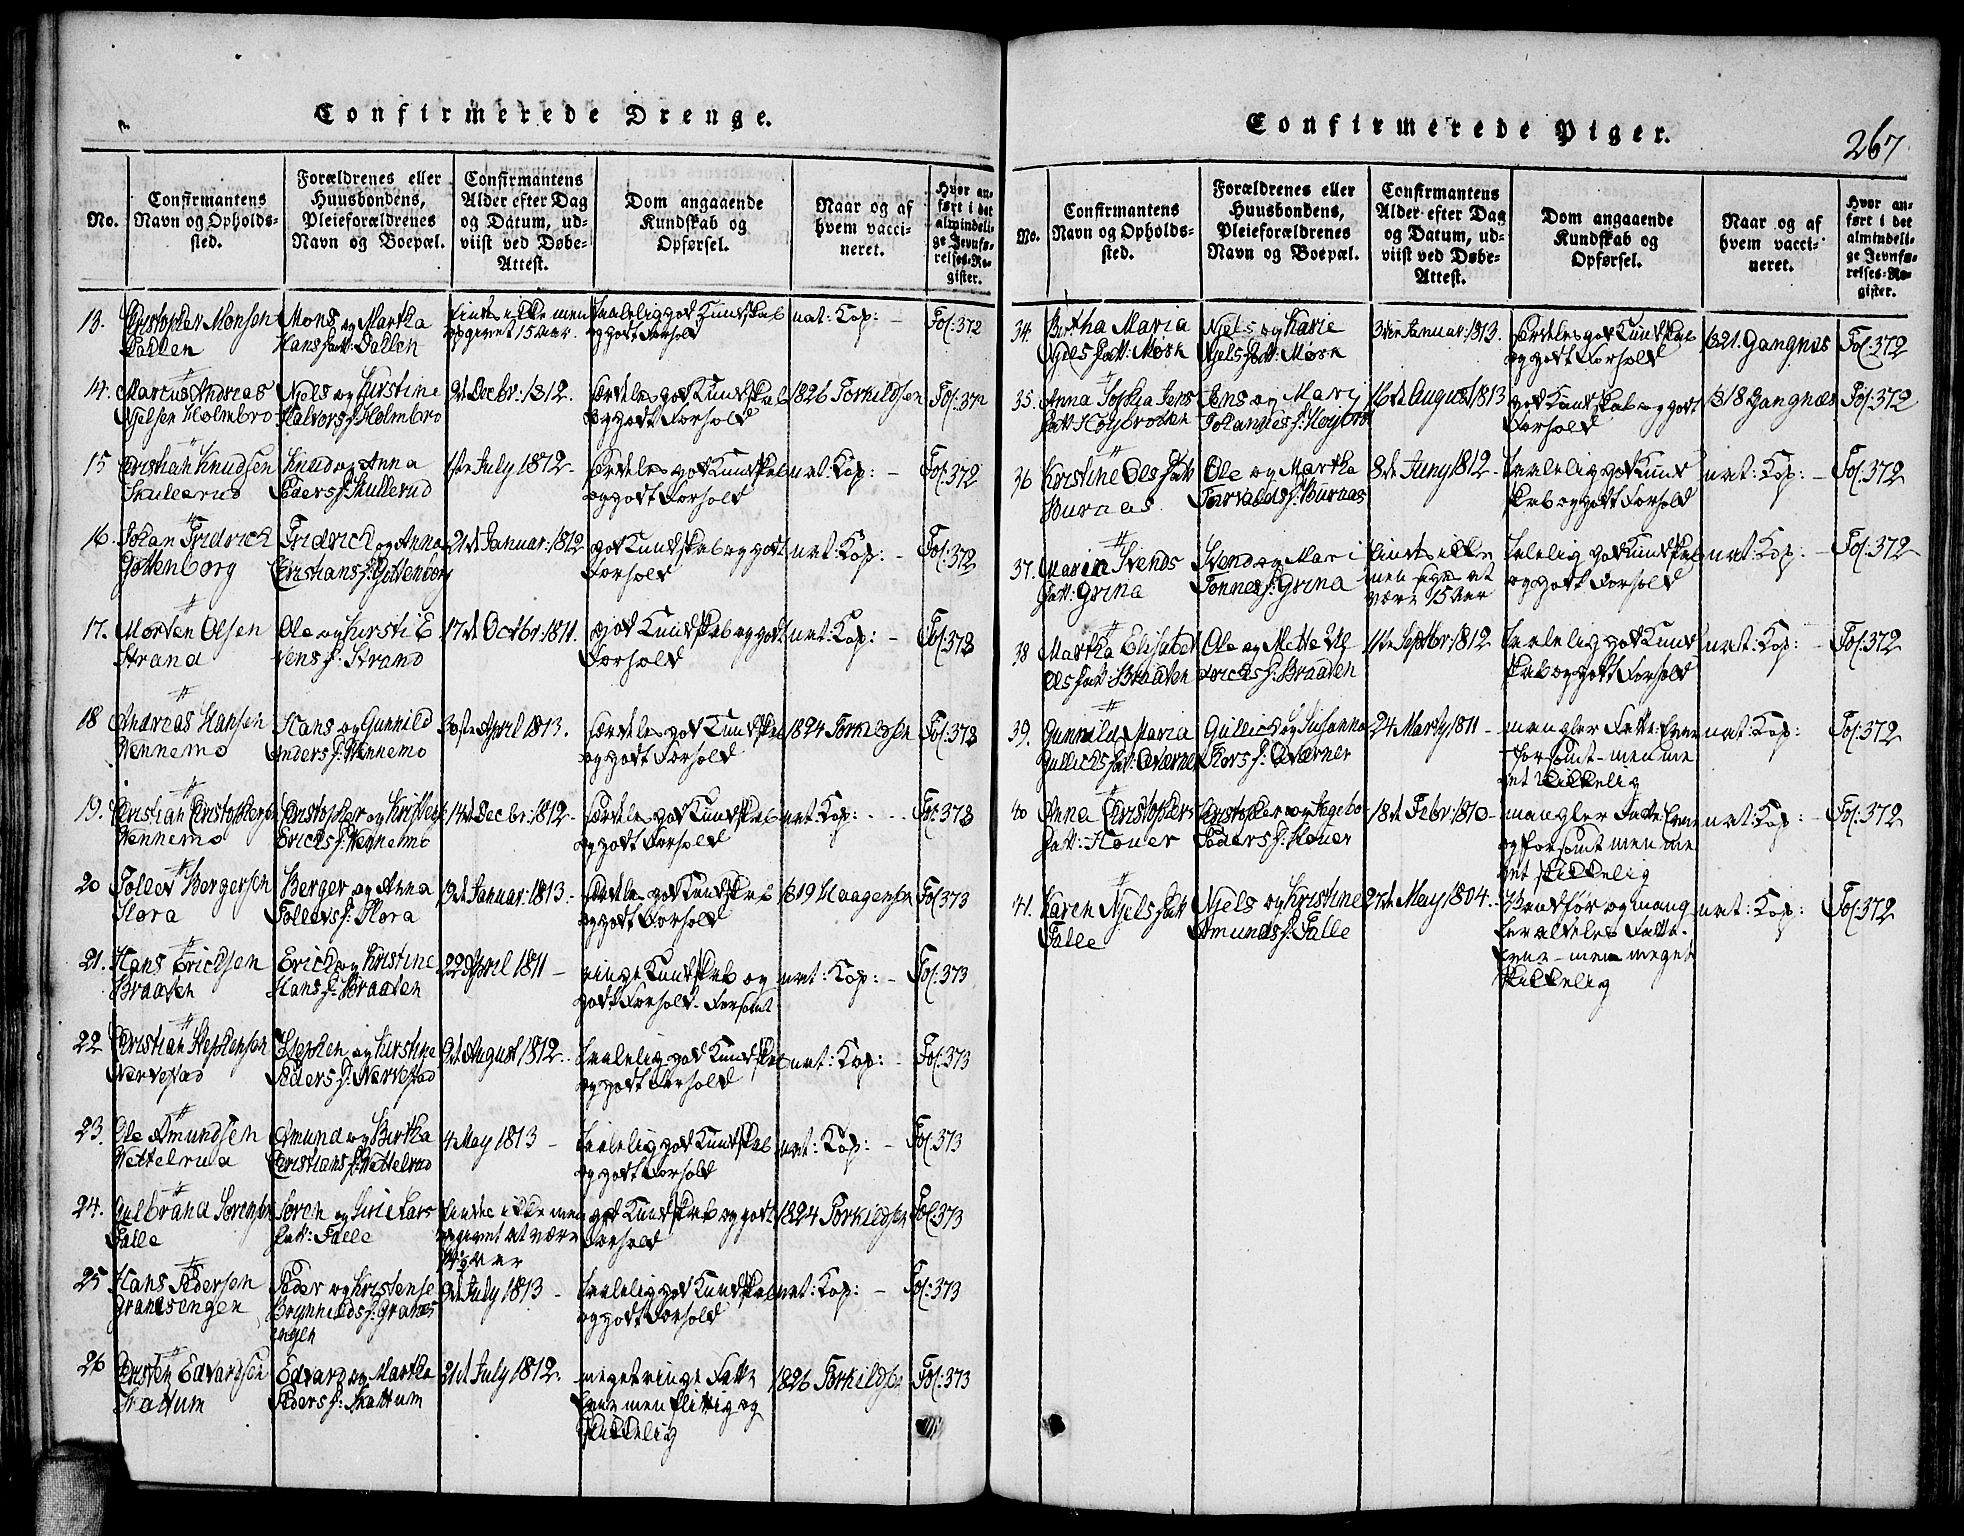 Confirmerede Drenge.
No.
Confirmantens
Navn og Opholds-
sted.
Forældrenes eller
Huusbondens,
Pleieforældrenes
Navn og Boepæl.
Confirmantens
Alder efter Dag
og Datum, ud-
viist ved Døbe-
Attest.
Dom angaaende
Kundskab og
Opførsel.
Naar og af
hvem vacci-
neret.
Hvor an-
ført i det
almindeli-
ge Jevnfø-
relses-Re-
gister.
13.
Christopher Monsen
Dallen
Mons og Martha
Hans Datt: Dallen
findes ikke men
opgivet 15 aar.
Taalelig god Kundskab
og godt Forhold
nat: Kop: -
Fol: 372
14.
Marcus Andreas
Njelsen Holmbro
Njels og Kirstine
Halvors f: Holmbro
2d Decbr: 1812.
særdeles god Kundskab
og godt Forhold
1826 Torkildsen
Fol: 372
15
Christian Knudsen
Skullerud
Knud og Anna
Peders f: Skullerud
1ste July 1812 -
særdeles god Kundskab
og godt Forhold
nat: Kop: -
Fol: 372
16.
Johan Fridrich
Gøttenborg
Fridrich og Anna
Christians f: Gøttenborg
21de Januar: 1812
god Kundskab og godt
Forhold
nat: Kop: -
Fol: 372
17.
Morten Olsen
Strand
Ole og Kirsti E
vens f: Strand
17de Octbr: 1811.
god Kundskab og godt
Forhold
nat: Kop: -
Fol: 373
18
Andreas Hansen
Vennemo
Hans og Gunnild
Anders f: Vennemo
30ste April 1813.
særdeles god Kundskab
og godt Forhold
1824 Torkildsen
Fol: 373
19.
Christian Christophers
Vennemo
Christopher og
Erichs f: Vennemo
14de Decbr: 1812 -
særdeles god Kundskab
og godt Forhold
nat: Kop: - -
Fol: 373
20
Tollev Bergersen
Flora
Berger og Anna
Tollevs f: Flora
13de Januar: 1813.
særdeles god Kundskab
og godt Forhold
1819 Haagensen
Fol: 373
21.
Hans Erichsen
Braaten
Erich og Kristine
Hans f: Braaten
22 April 1811 -
ringe Kundskab og
godt Forhold - forsømt
nat: Kop: -
Fol: 373
22
Christian Stephensen
Nærvestad
Stephen og Kirstine
Peders f: Nærvestad
9de August 1812 -
Taalelig god Kundskab
og godt Forhold
nat: Kop: -
Fol: 373
23.
Ole Amundsen
Vettelrud
Amund og Birtha
Christians f: Vettelrud
4 May 1813 -
Taalelig god Kundskab
og godt Forhold
nat: Kop: -
Fol: 373
24.
Gulbrand Sørensen
Falle
Søren og Siri Lars
Datt: Falle
findes ikke men
opgivet at være
god Kundskab og godt
Forhold
1824 Torkildsen
Fol: 373
25
Hans Pedersen
Granesengen
Peder og Kristense
Brynhilds f: Granes
engen
2de July 1813 -
Taalelig god Kundskab
og godt Forhold
nat: Kop: -
Fol: 373
26
Christen Edvardsen
Skattum
Edvard og Martha
Peders f: Skattum
21de July 1812.
meget ringe Fatte
Evne men flittig og
skikkelig
1826 Torkildsen
Fol: 373
Confirmerede Piger.
267
No.
Confirmantens
Navn og Opholds-
sted.
Forældrenes eller
Huusbondens,
Pleieforældrenes
Navn og Boepæl.
Confirmantens
Alder efter Dag
og Datum, ud-
viist ved Døbe-
Attest.
Dom angaaende
Kundskab og
Opførsel.
Naar og af
hvem vacci-
neret.
Hvor an-
ført i det
almindeli-
ge Jevnfø-
relses-Re-
gister.
34.
Birtha Maria
Njels Datt: Mørk
Njels og Karie
Njels Datt: Mørk
3die Januar: 1813.
særdeles god Kundskab
og godt Forhold
1821. Gangnæs
Fol: 372
35.
Anna Sophia Jens
Datt: Høybroten
Jens og Mari
Johannes f: Høybro
16de August 1813
god Kundskab og godt
Forhold
1818 Gangnæs
Fol: 372
36
Kristine Ols Datt
Buraas
Ole og Martha
Torvalds f: Buraas
8de Juny 1812 -
Taalelig god Kund
skab og godt Forhold
nat: Kop: -
Fol: 372
37.
Maria Svends
Datt: Grina
Svend og Mari
Tønnes f: Grina
findes ikke
men siges at
være 15 Aar
Taalelig god Kundskab
og godt Forhold
nat: Kop: -
Fol: 372
38
Martha Elisabet
Ols Datt: Braaten
Ole og Mette Ul
drichs f: Braaten
11te Septbr: 1812
Taalelig god Kund
skab og godt Forhold
nat: Kop: -
Fol: 372
39.
Gunnild Maria
Gullichs Datt: Qværner
Gullich og Susanna
Thors f: Qværner
24 Marty 1811 -
mangler Fatte Evne
- forsømt - men me
get skikkelig
nat: Kop: -
Fol: 372
40
Anna Christophers
Datt: Houer
Christopher og Ingebor
Peders f: Houer
18de Febr: 1810 -
mangler Fatte Evne
og forsømt men me
get skikkelig
nat: Kop: -
Fol: 372
41.
Karen Njels Datt
Falle
Njels og Kristine
Amunds f: Falle
27de May 1804.
og mang
ler aldeles Fatte-
Evne - men meget
skikkelig
nat: Kop:
Fol: 372